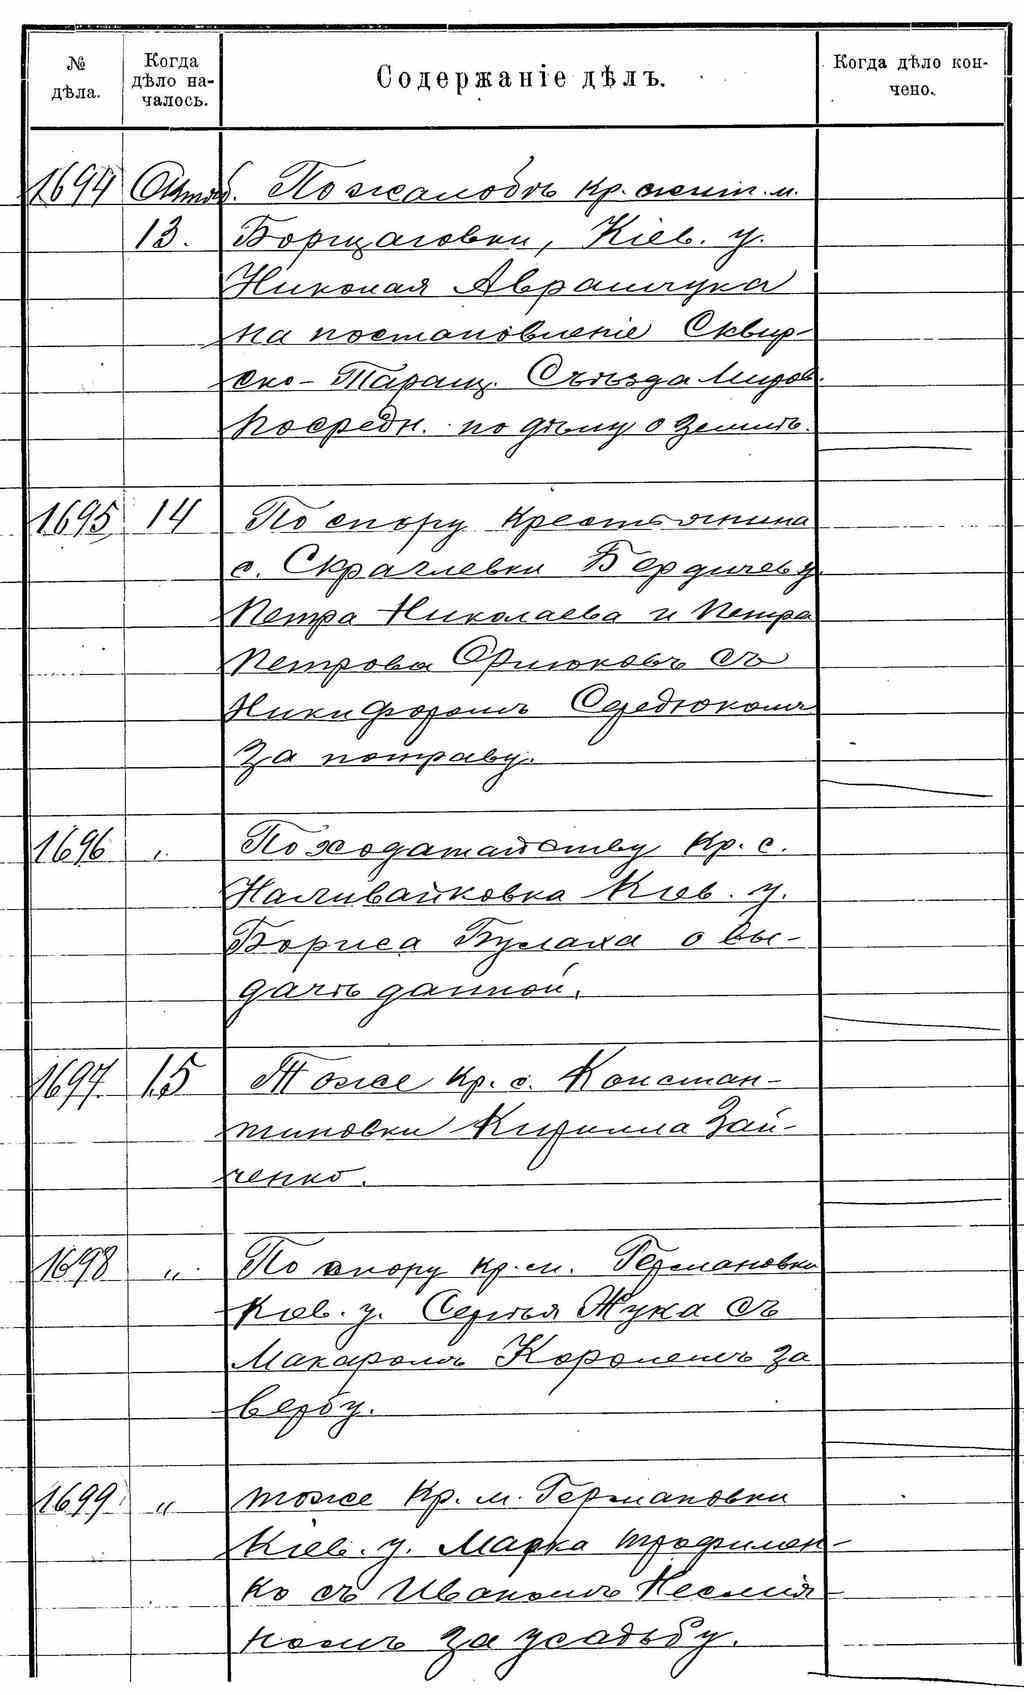 № дѣла. Когда дѣло началось. Содержаніе дѣлъ. Когда дѣло кончено.
1694 Октяб. По жалобѣ кр. жит. м.
13. Борщаговки, Кіев. у.
Николая Аврамчука
на постановленіе Сквир-
ско-Таращ. Съѣзда Миров.
Посредн. по дѣлу о землѣ.
1695 14 По спору крестьянина
с. Скраглевки Бердичев у.
Петра Николаева и Петра
Петрова Орлюковъ съ
Никифоромъ Середюкомъ
за потраву.
1696 " По ходатайству кр. с.
Наливайковка Кіев. у.
Бориса Булаха о вы-
дачѣ данной.
1697 15 Тоже кр. с. Констан-
тиновки Кирилла Зай-
ченко.
1698 " По спору кр. м. Германовки
Кіев. у. Сергѣя Жука съ
Макаромъ Королемъ за
вербу.
1699 " тоже кр. м. Германовки
Кіев. у. Марка Трофимен-
ко съ Иваномъ
за усадьбу.